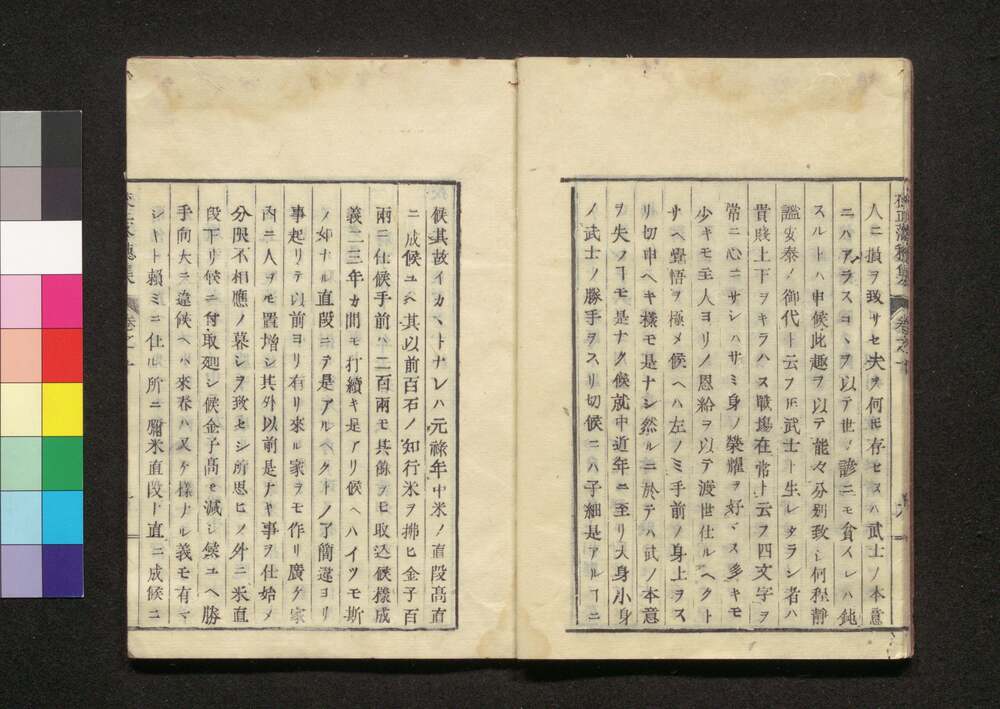 人ニ損ヲ致サセ夫ヲ何モ存セスハ武士ノ本意
ニハアラスコヽヲ以テ世ノ諺ニモ貪イレハ鈍
スルトハ申候此趣ヲ以テ能々分別致シ何程靜
謐安泰ノ御代ト云フ𪜈武士ト生レタラン者ハ
貴賤上下ヲキラハス戰塲在常ト云フ四文字ヲ
常ニ心ニサシハサミ身ノ榮耀ヲ好マス多キモ
少キモ主人ヨリノ恩給ヲ以テ渡世仕ルヘクト
サヘ覺悟ヲ極メ候ヘハ左ノミ手前ノ身上ヲス
リ切申ヘキ樣モ是ナシ然ルニ於テハ武ノ本意
ヲ失ノヿモ是ナク候就中近年ニ至リ大身小身
ノ武士ノ勝手ヲスリ切候ニハ子細是アルヿニ
候其故イカヽトナレハ元祿年中米ノ直段髙直
ニ成候ユヘ其以前百石ノ知行米ヲ拂ヒ金子百
兩ニ仕候手前ハ二百兩モ其餘ヲモ取込候樣成
義二三年カ間モ打續キ是アリ候ヘハイツモ斯
ノ如ナル直段ニテ是アルヘクトノ了簡違ヨリ
事起リテ以前ヨリ有リ來ル家ヲモ作リ廣ケ家
内ニ人ヲモ置增シ其外以前是ナキ事ヲ仕始メ
分限不相應ノ暮シヲ致セシ所思ヒノ外ニ米直
段下リ候ニ付取廻シ候金子髙モ減シ候ユヘ勝
手向大ニ違候ヘハ來春ハ又ケ樣ナル義モ有マ
シキト賴ミニ仕ル所ニ彌米直段下直ニ成候ニ